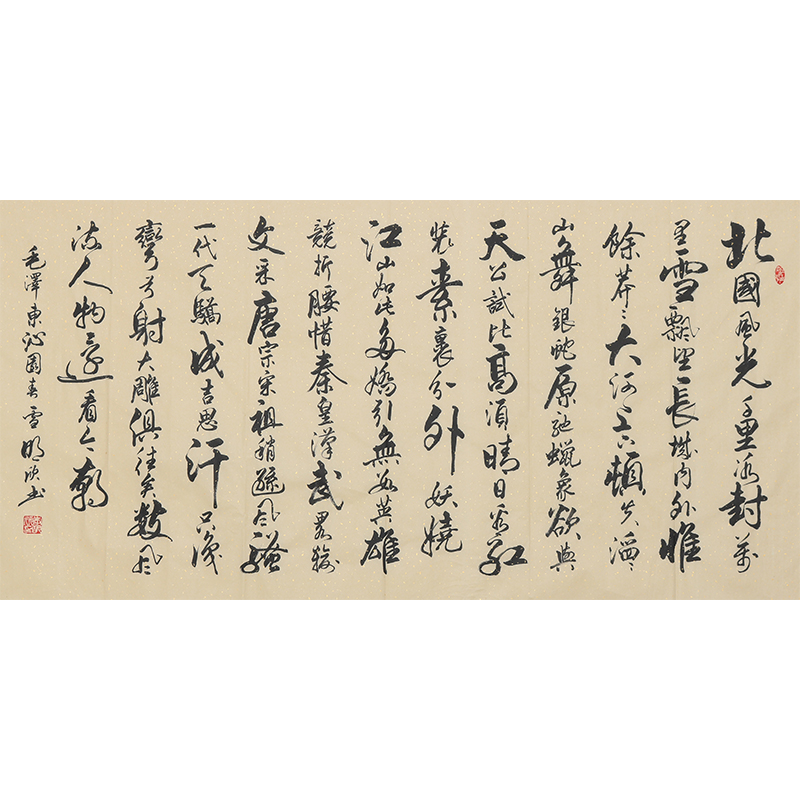 北國風光千里冰封萬
里雪飄望長城内外惟
餘莽〻大河上下頓失滔〻
山舞銀蛇原馳蠟象欲與
天公試比高須晴日看紅
裝素裹分外妖嬈
江山如此多嬌引無數英雄
競折腰惜秦皇漢武畧輸
文采唐宗宋祖稍遜風騷
一代天驕成吉思汗只識
彎弓射大雕俱往矣數風
流人物還看今朝
毛澤東沁園春雪明欣书